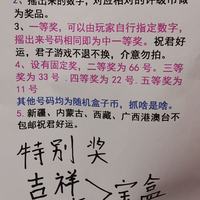 2、摇出来的数字，对应相对的评级币做
为奖品。
3、一等奖，可以由玩家自行指定数字，
摇出来号码相同即为中一等奖。祝君好
运，君子游戏不退不换，介意勿拍。
4、设有固定奖，二等奖为 66 号。三等
奖为 33 号 .四等奖为 22 号.五等奖为
11 号
其他号码均为随机盒子币，抓啥是啥。
5. 新疆、内蒙古、西藏、广西港澳台不
包邮祝君好运。
特别奖
吉祥
宝盒